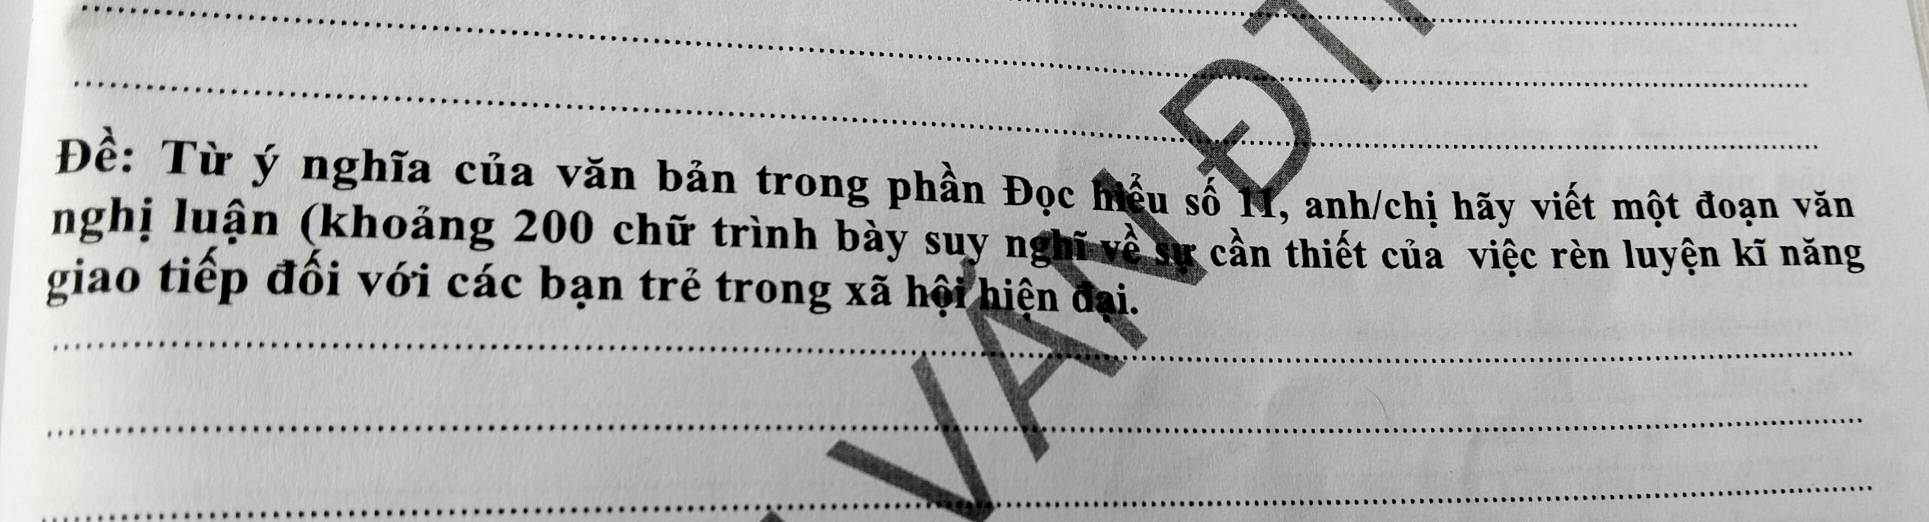 Đề: Từ ý nghĩa của văn bản trong phần Đọc hiểu số 11, anh/chị hãy viết một đoạn văn
nghị luận (khoảng 200 chữ trình bày suy nghĩ về sự cần thiết của việc rèn luyện kĩ năng
giao tiếp đối với các bạn trẻ trong xã hội hiện đại.
VĂN